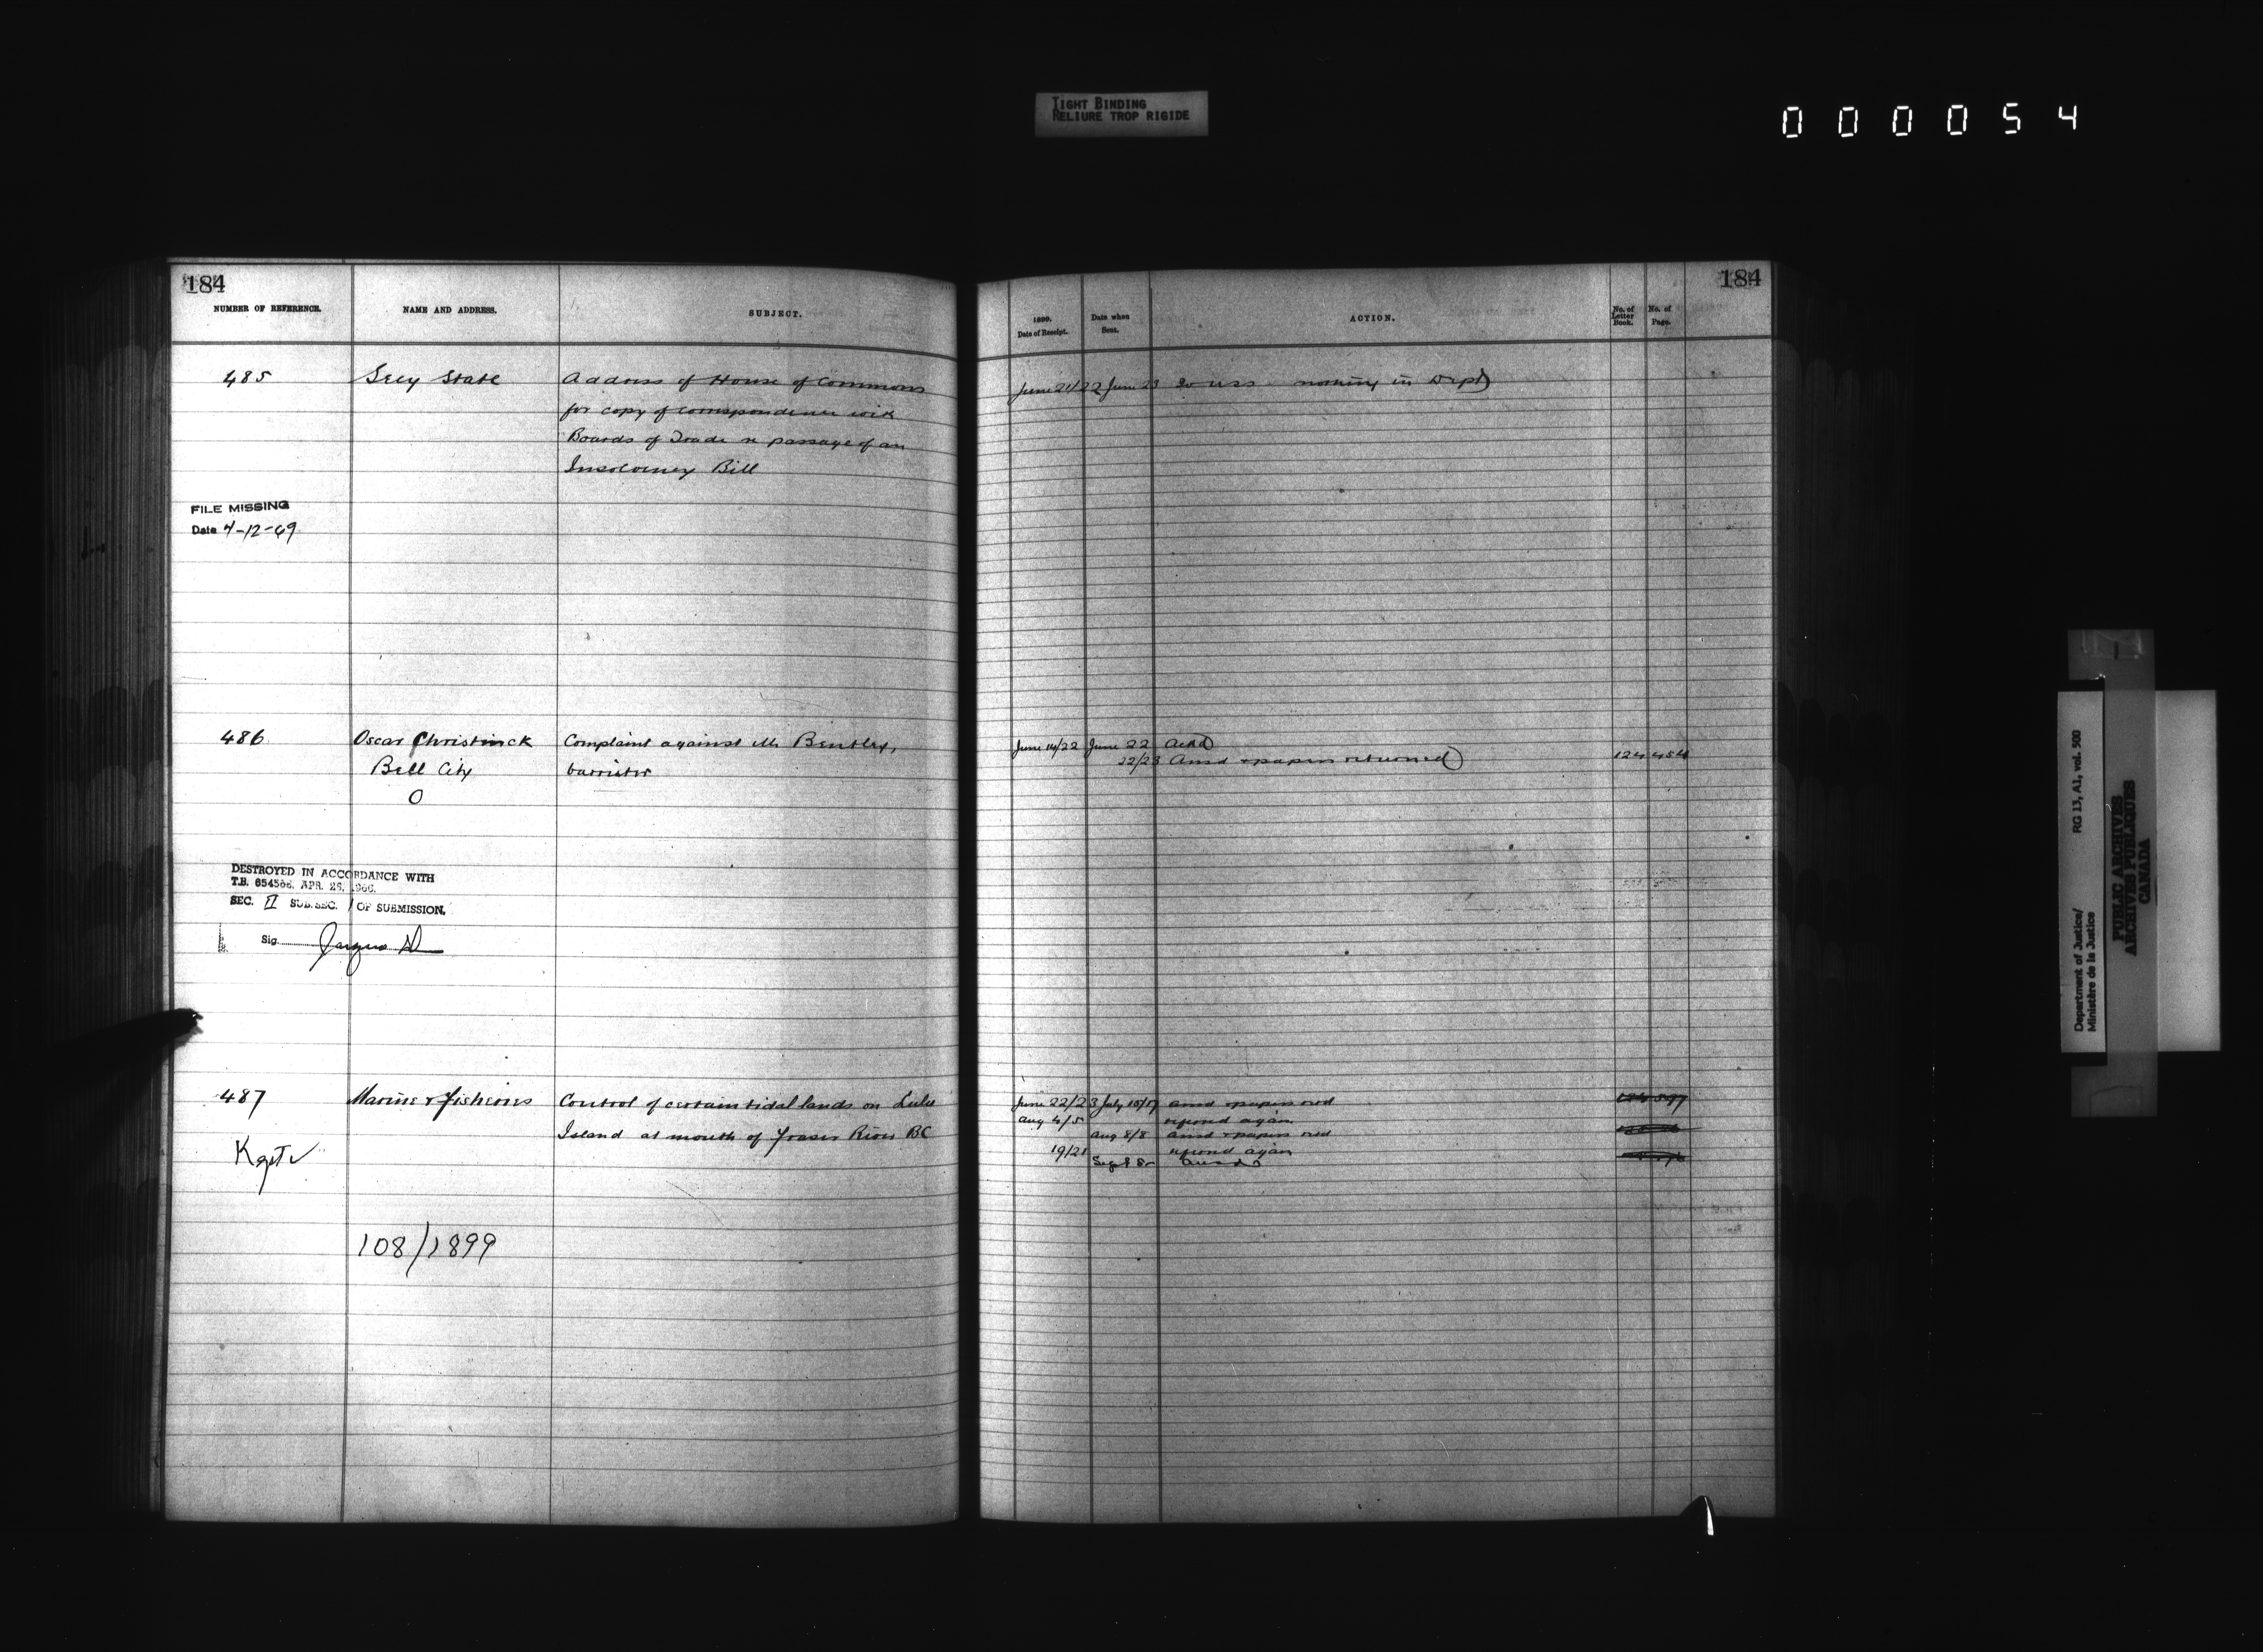 TIGHT BINDING
RELIURE TROP RIGIDE
000054
184
NUMBER OF REFERENCE.
NAME AND ADDRESS.
SUBJECT.
485
Secy State
Address of House of Commons
for copy of correspondence with
Boards of Trade re passage of an
Insolvency Bill
FILE MISSING
Date 4-12-69
486
Oscar Christinck
Bell City
O
Complaint against Mr Bentley,
barrister
DESTROYED IN ACCORDANCE WITH
T.B. 654586. APR. 26, 1966.
SEC. II SUB.SEC. 1 OF SUBMISSION.
Sig.
487
Marine & Fisheries
Control of certain tidal lands on Lulu
Island at mouth of Fraser River BC
108/1899
184
1899.
Date of Receipt.
Date when
Sent.
ACTION.
No. of
Letter
Book.
No. of
Page.
June 21/22 June 23 nothing in Dept
June 14/22 June 22 Ackd
22/23 Ansd & papers returned
124 454
June 22/23 July 15/17 ansd & papers retd
Aug 4/5 referred again
Aug 8/8 ansd & papers retd
19/21 referred again
Sept
Department of Justice/
Ministère de la Justice
RG 13, A1, vol. 500
PUBLIC ARCHIVES
ARCHIVES PUBLIQUES
CANADA